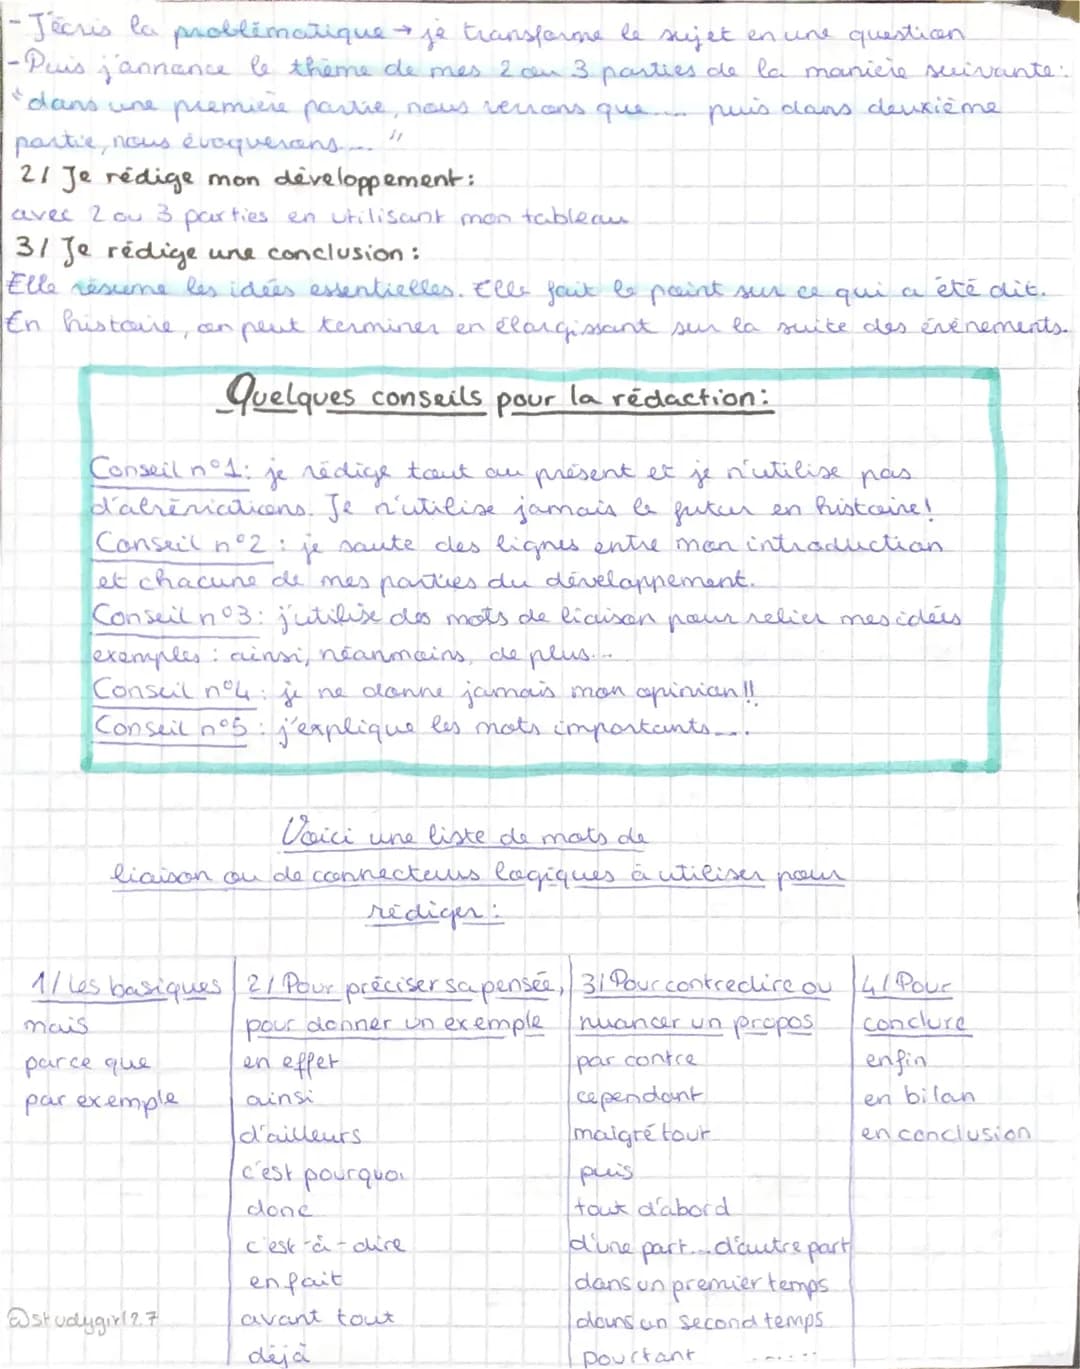 - J'écris la problèmatique → je transforme le sujet en une question
- Puis j'annonce le thème de mes 2 ou 3 parties de la manière suivante:
"dans une première partie, nous verrons que.... puis dans deuxième
partie, nous évoquerons.... "
2/ Je rédige mon développement:
avec 2 ou 3 parties en utilisant mon tableau
3/ Je rédige une conclusion:
Elle résume les idées essentielles. Elle fait le point sur ce qui a été dit.
En histoire, on peut terminer en élargissant sur la suite des événements.
Quelques conseils pour la rédaction:
Conseil n°1: je rédige tout au présent et je n'utilise pas
d'abréviations. Je n'utilise jamais le futur en histoire!
Conseil n°2: je saute des lignes entre mon introduction
et chacune de mes parties du développement.
Conseil n°3: j'utilise des mots de liaison pour relier mes idées
exemples: ainsi, néanmoins, de plus...
Conseil n°4: je ne donne jamais mon opinion!!
Conseil n°5: j'explique les mots importants....
Voici une liste de mots de
liaison ou de connecteurs logiques à utiliser pour
rédiger:
1/ Les basiques
mais
parce que
par exemple
2/ Pour préciser sa pensée,
pour donner un exemple
en effet
ainsi
d'ailleurs
c'est pourquoi
donc
c'est-à-dire
en fait
avant tout
déjà
3/ Pour contredire ou
nuancer un propos
par contre
cependant
malgré tout
puis
tout d'abord
d'une part...d'autre part
dans un premier temps
dans un second temps
pourtant ......
4/ Pour
conclure
enfin
en bilan
en conclusion
@studygirl27